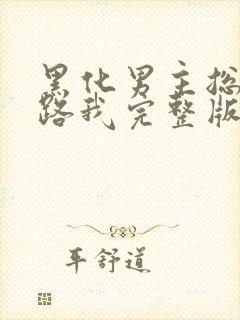 黑化男主
路我完整版
舒道